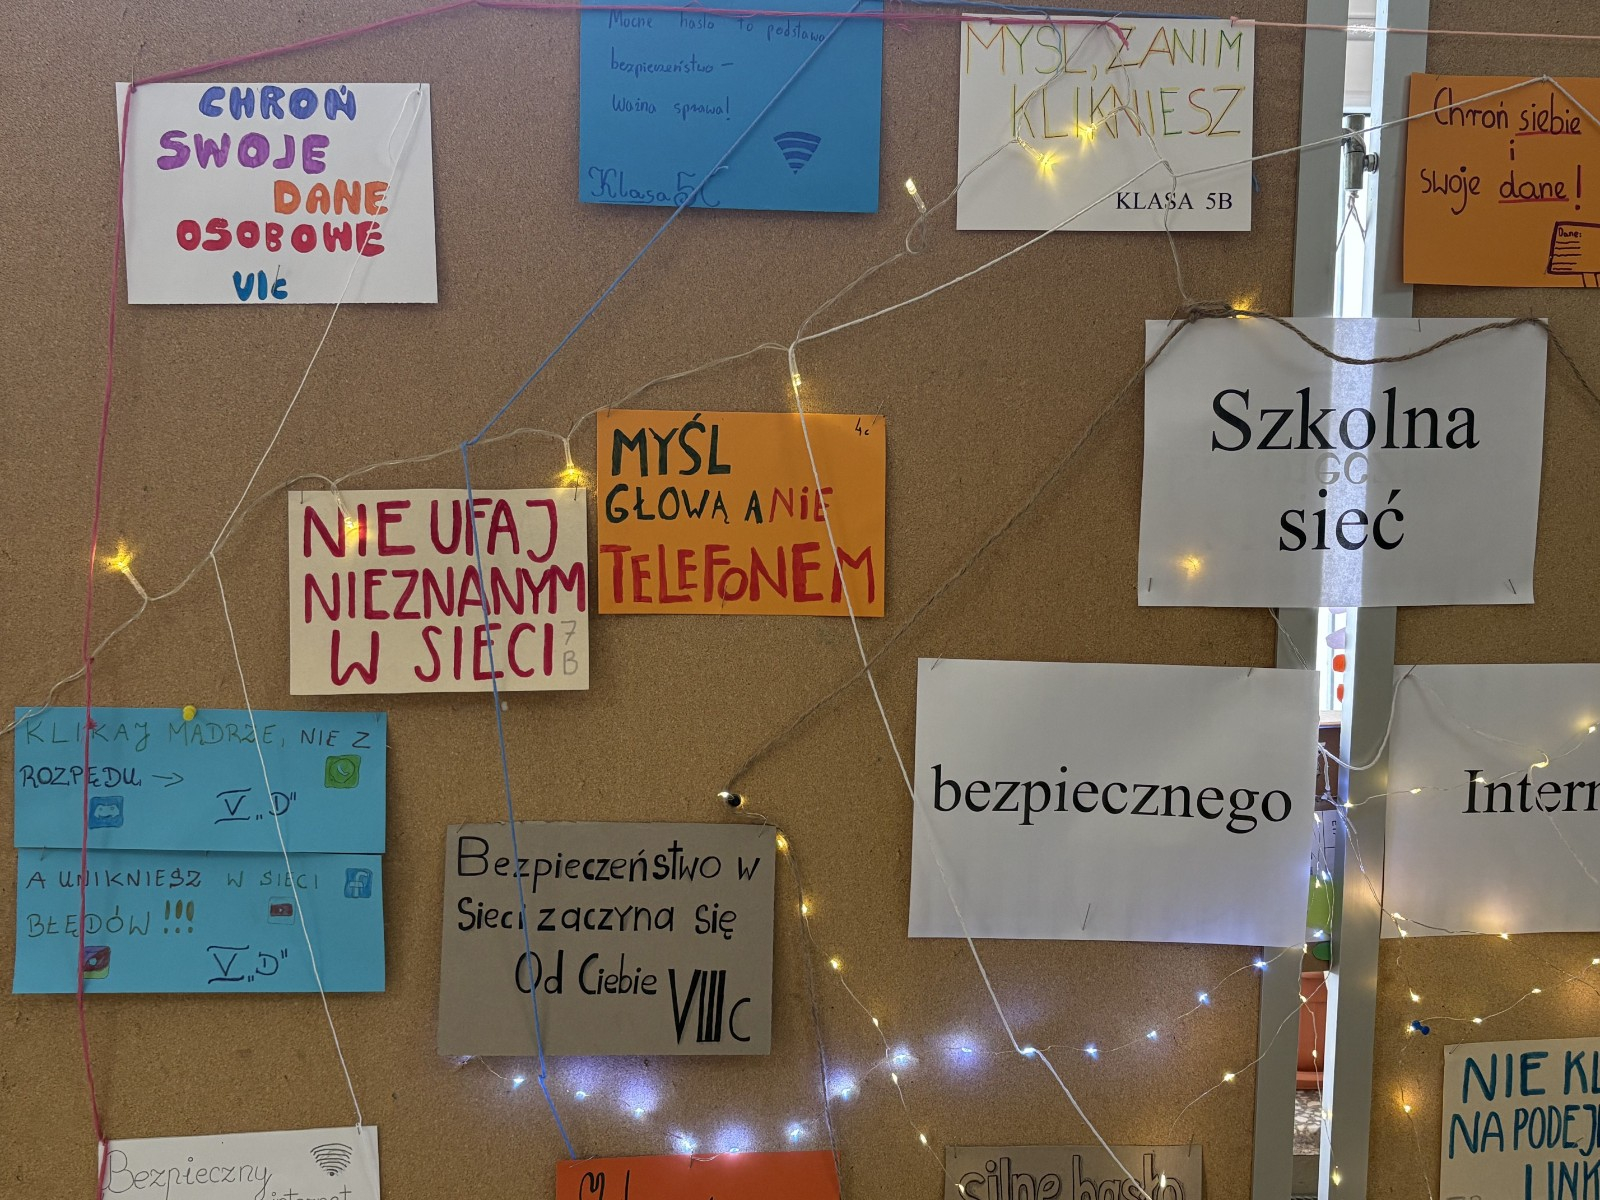 CHROŃ
SWOJE
DANE
OSOBOWE
VIc
Mocne hasło to podstawa
bezpieczeństwo –
Ważna sprawa!
Klasa 5C
MYŚL, ZANIM
KLIKNIESZ
KLASA 5B
Chroń siebie
i
swoje dane!
Dane:
Szkolna
sieć
MYŚL 4c
GŁOWĄ A NIE
TELEFONEM
NIE UFAJ
NIEZNANYM
W SIECI 7B
KLIKAJ MĄDRZE, NIE Z
ROZPĘDU →
V „D"
A UNIKNIESZ W SIECI
BŁĘDÓW !!!
V „D"
bezpiecznego
Intern
Bezpieczeństwo w
Sieci zaczyna się
Od Ciebie VIIIc
NIE KL
NA PODEJ
LINK
Bezpieczny
internet
silne hasło